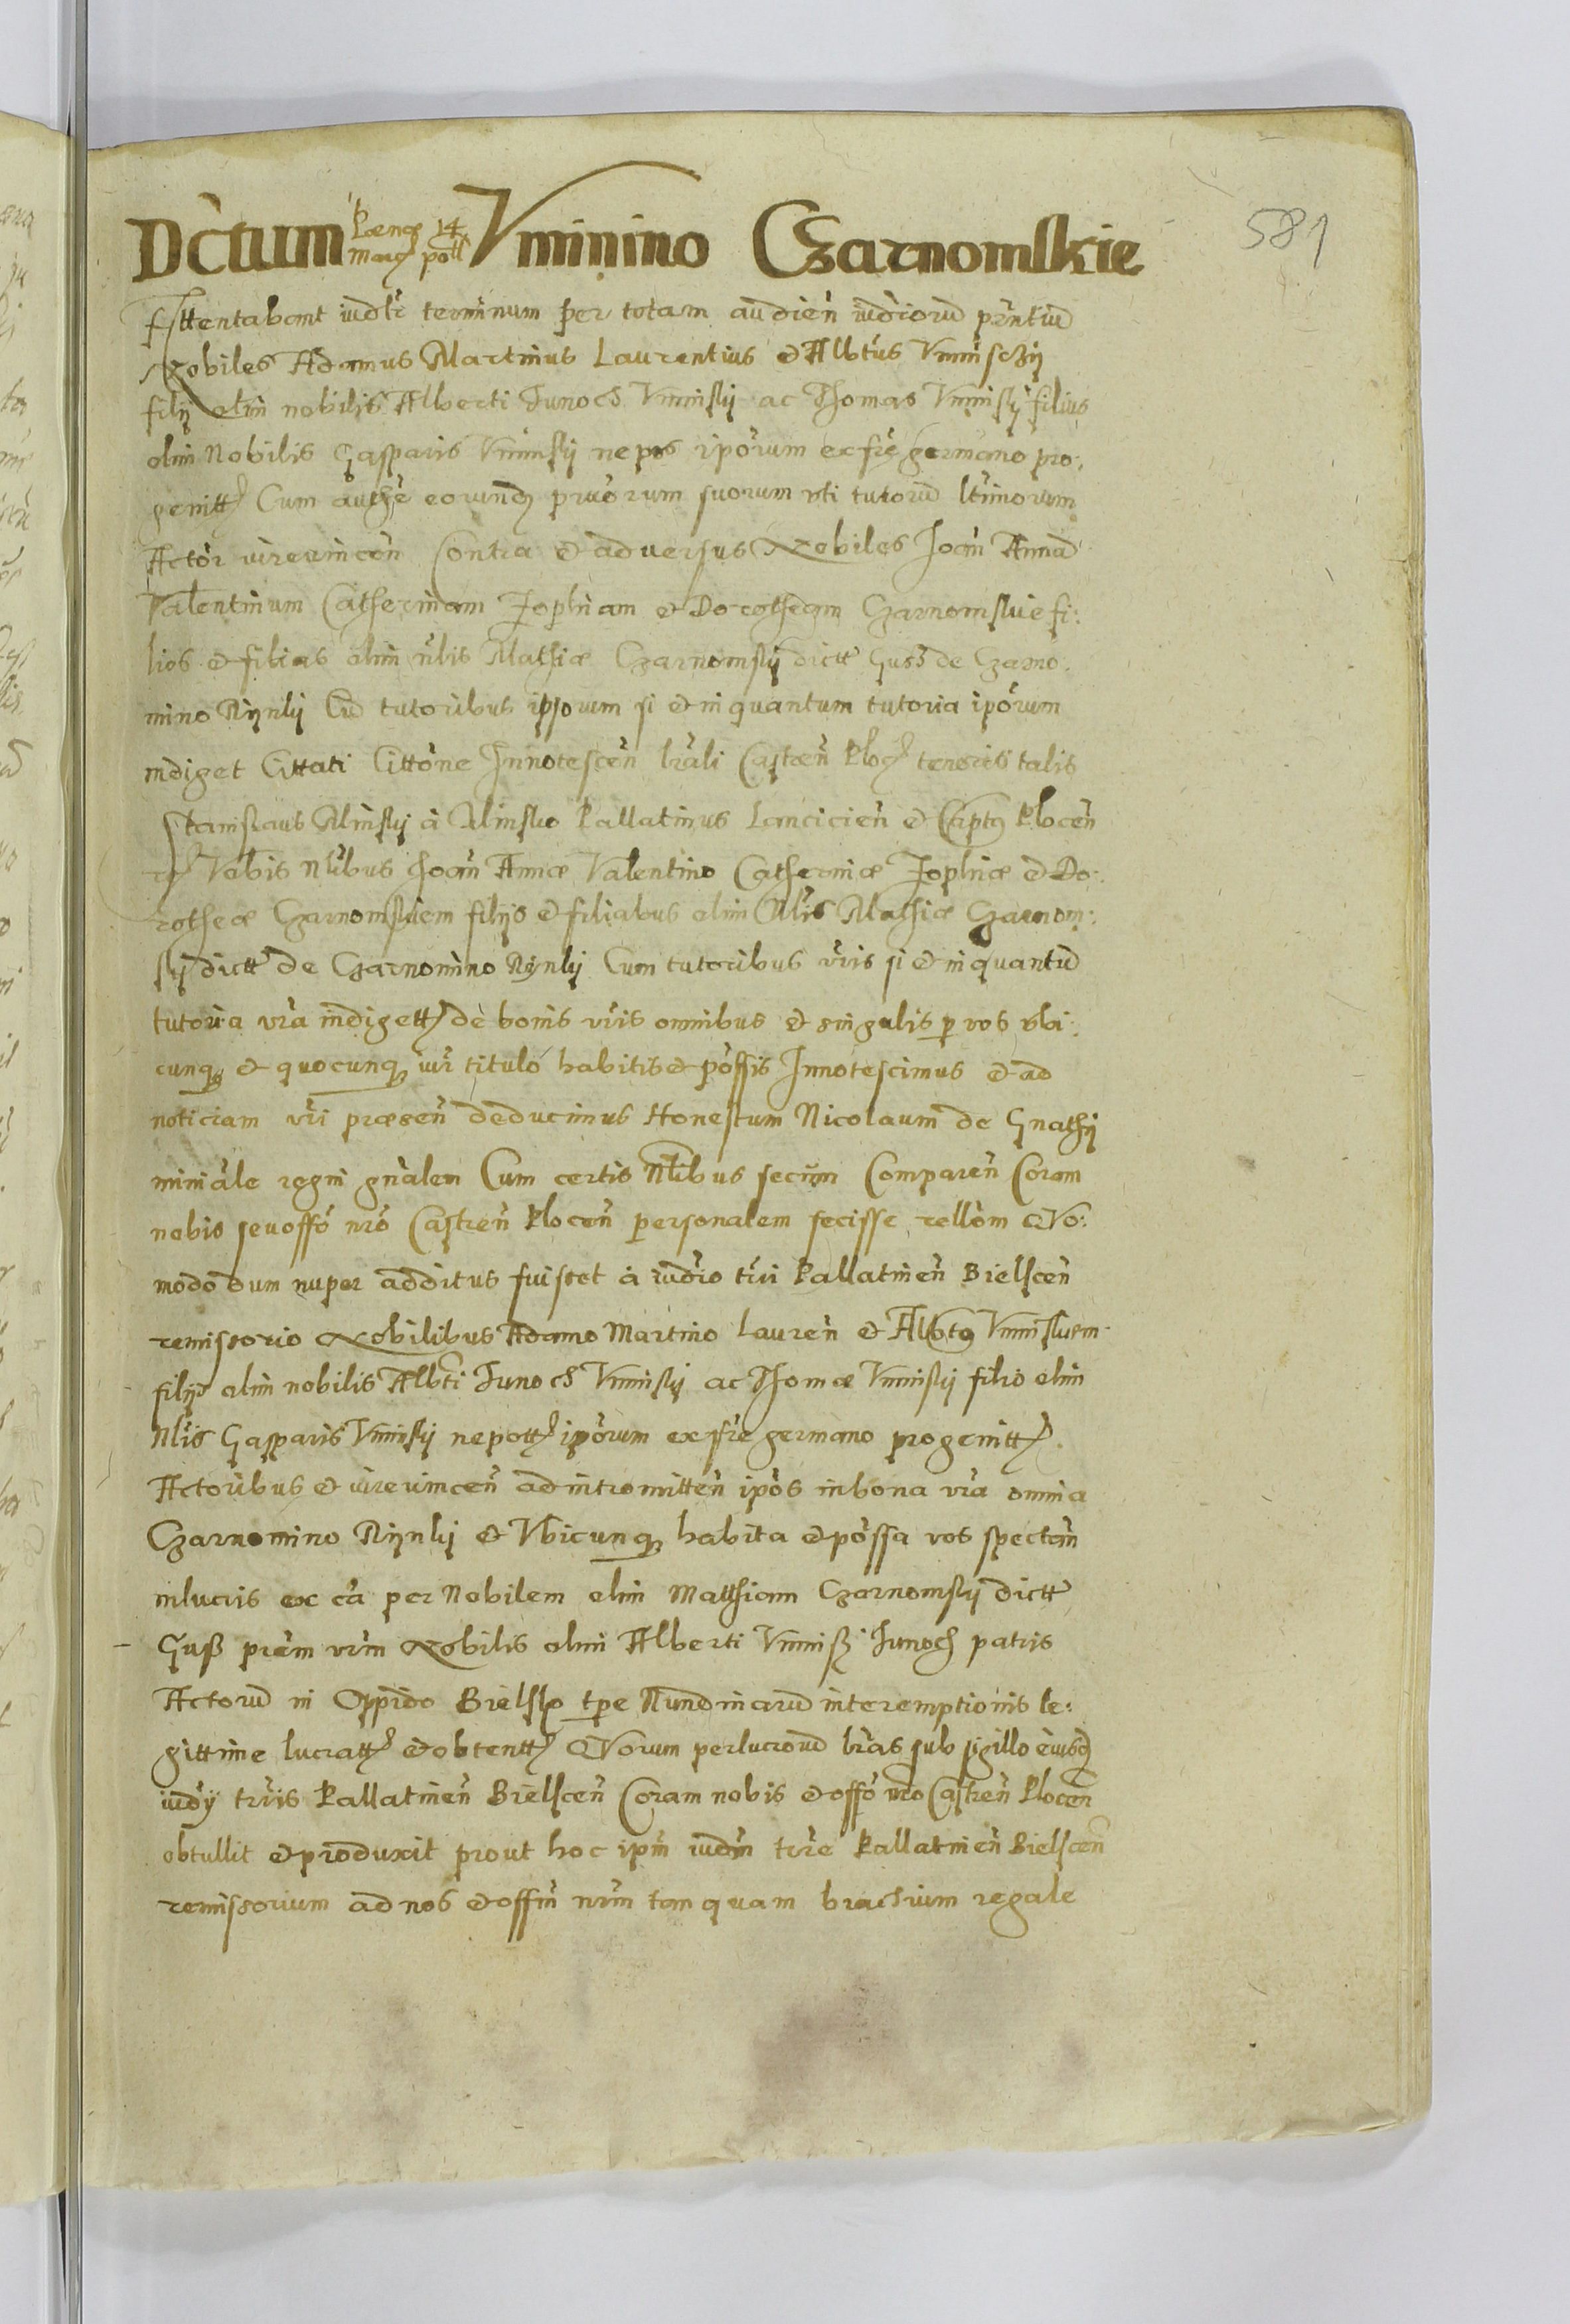 581
Dctum Poena 14 Marc poll Vminino Czarnomskie
Attentabant iudlr terminum per totam audien iudiciorū prntiū
Nobiles Adamus Martinus Laurentius et Albtus Vminsczÿ
filÿ olim nobilis Alberti Junoch Vminskÿ ac Thomas Vminskÿ filius
olim Nobilis Gasparis Vminskÿ nepos ipõrum ex frẽ germano pro:
genitt Cum eorund suorum uti tutorū ltimorum
Actor vireuincen Contra et aduersus Nobiles Joan Annā
Valentinum Catherinam Zophiam et Dorotheam Czarnomskie fi:
lios et filias olim nlis Mathiæ Czarnomskÿ dictt Guss de Czarno:
mino Rÿnkÿ Cū tutoribus ipsorum si et in quantum tutoria ipõrum
indiget Cittati Cittõne Innotescen lrali Castren Ploc tenoris talis
Stanislaus Minskÿ à Minsko Pallatinus Lancicien et Captus Plocen
Vobis Nlibus Joan Annæ Valentino Catherinæ Zophiæ et Do:
rotheæ Czarnomskiem filÿs et filiabus olim Nlis Mathiæ Czarnom:
skÿ dictt de Czarnomino Rÿnkÿ Cum tutoribus vris si et in quantū
tutoria vra indigett de bonis vris omnibus et singulis p vos vbi:
cunq et quocunq iur titulo habitis et possis Innotescimus et ad
noticiam vri præsen deducimus Honestum Nicolaum de Gnathÿ
miniāle regni gnalem Cum certis Nlibus secum Comparen Coram
nobis seu offo nro Castren Plocen personalem fecisse rellom Quo:
modo dum nuper additus fuisset à iudio trri Pallatinen Bielscen
remissorio Nobilibus Adamo Martino Lauren et Albto Vminskiem
filÿs olim nobilis Albti Junoch Vminskÿ ac Thomæ Vminskÿ filio olim
Nlis Gasparis Vminskÿ nepott ipõrum ex fre germano progenitt
Actoribus et vireuincen ad intromitten ipõs in bona vra omnia
Czarnomino Rÿnkÿ et Vbicunq habita et possa vos spectan
in lucris ex ca per Nobilem olim Matthiam Czarnomskÿ dictt
Guss prem vrm Nobilis olim Alberti Junoch patris
Actorū in Oppido Bielsko tpe Nundinarū interemptionis le:
gittime lucratt et obtentt Quorum perlucrorū lras sub sigillo eiusd
iudÿ trris Pallatinen Bielscen Coram nobis et offo nro Castren Plocen
obtullit et produxit prout hoc ipm iudm trre Pallatinen Bielscen
remissorium ad nos et offm nrm tanquam brachium regale